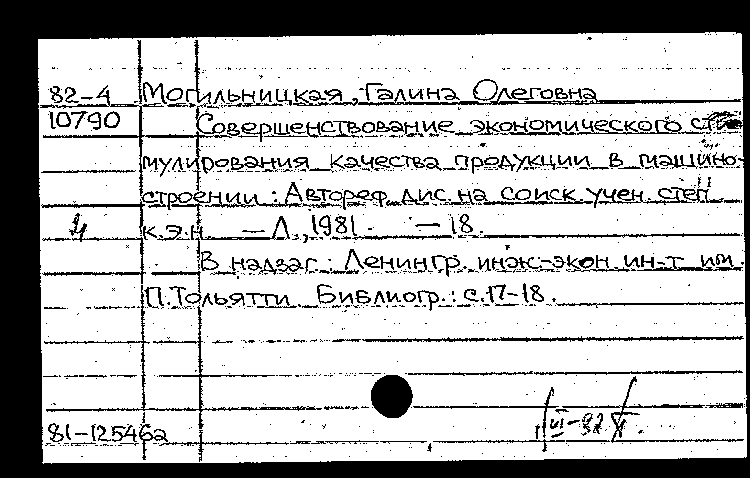 82-4 Могильницкая, Галина Олеговна
10790 Совершенствование экономического сти
мулирования качества продукции в машино-
строении : Автореф. дис. на соиск. учен. степ.
к.э.н. — Л., 1981. — 18.
В надзаг.: Ленингр. инж.-экон. ин-т им.
П. Тольятти. Библиогр.: с. 17-18.
81-12546а
VI-82